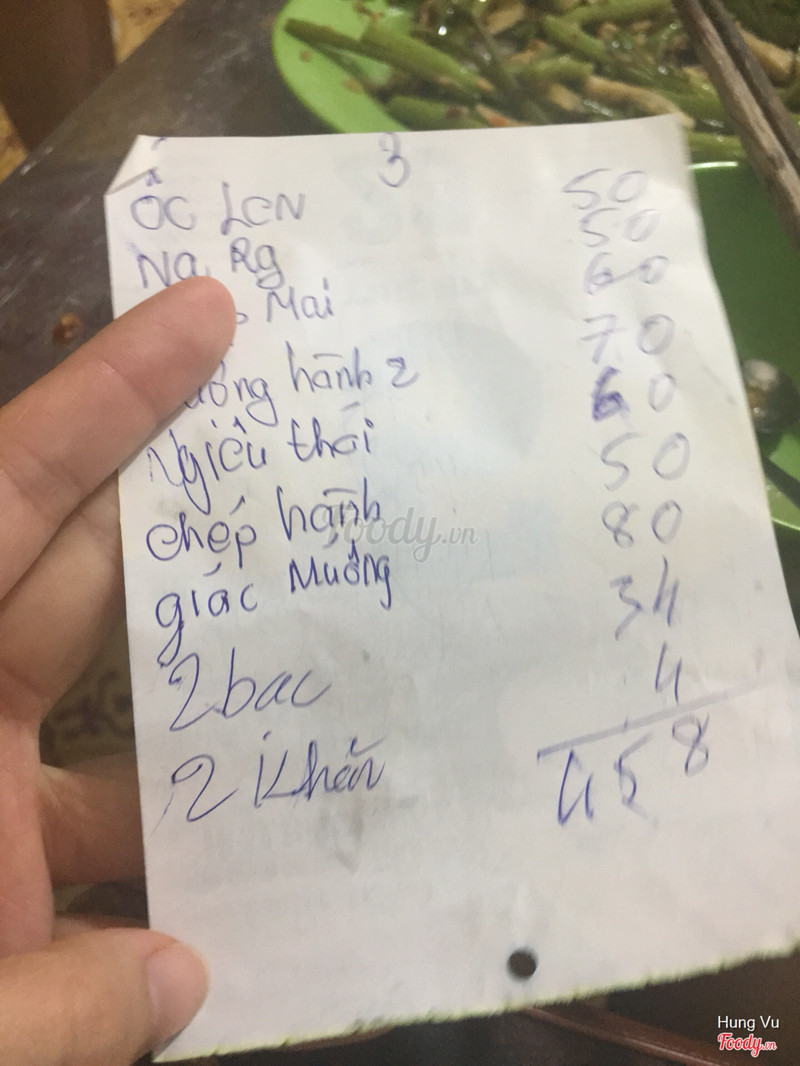 3
ỐC LEN 50
NA Rg 50
Mai 60
hành 2 70
Ngiêu thái 60
chép hành 50
giác Muống 80
2 bac 34
2 Khăn 4
458
foody.vn
Hung Vu
Foody.vn